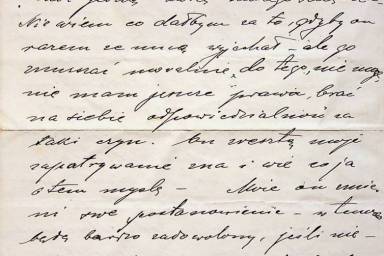 Nie wiem co dałbym za to, gdyby on
razem ze mną wyjechał – ale go
zmuszać moralnie do tego, nie mogę
nie mam jeszcze prawa, brać
na siebie odpowiedzialność za
taki czyn. On zresztą moje
zapatrywanie zna i wie co ja
o tem myślę – Może on zmie-
ni swe postanowienie –
będę bardzo zadowolony, jeśli nie-